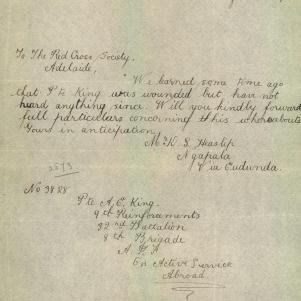 To The Red Cross Society,
Adelaide,
We learned some time ago
that Pte King was wounded but have not
heard anything since. Will you kindly forward
full particulars concerning & his whereabouts
Yours in anticipation
K. S. Heaslip
Ngapala
Via Eudunda
No 3828
Pte A. C. King.
9th Reinforcements
32nd Battalion
8th Brigade
A. I. F.
On Active Service
Abroad.